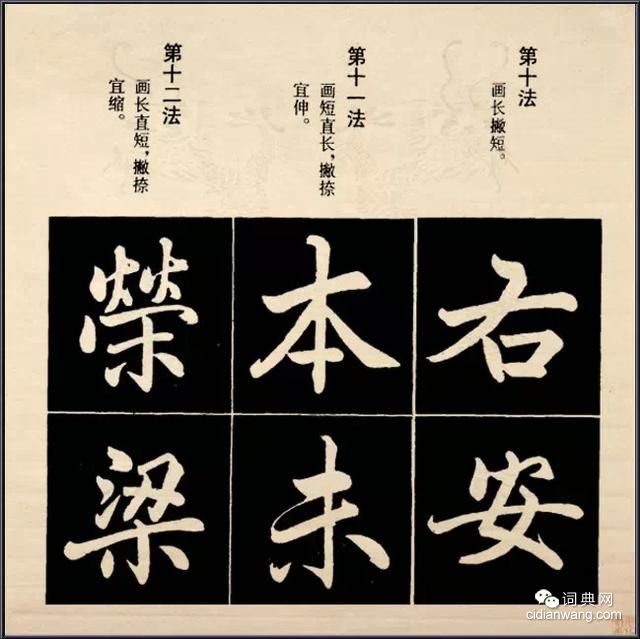 第十法
画长撇短。
右
安
第十一法
画短直长，撇捺
宜伸。
本
未
第十二法
画长直短，撇捺
宜缩。
荣
梁
词典网
cidianwang.com